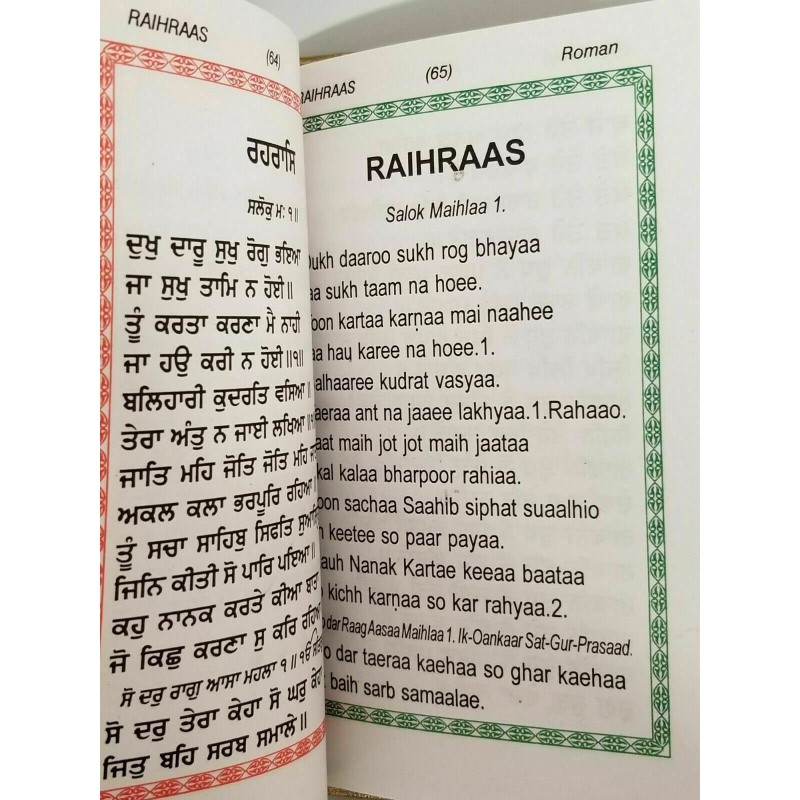 RAIHRAAS
(64)
ਰਹਰਾਸਿ
ਸਲੋਕੁ ਮਃ ੧॥
ਦੁਖੁ ਦਾਰੂ ਸੁਖੁ ਰੋਗੁ ਭਇਆ
ਜਾ ਸੁਖੁ ਤਾਮਿ ਨ ਹੋਈ॥
ਤੂੰ ਕਰਤਾ ਕਰਣਾ ਮੈ ਨਾਹੀ
ਜਾ ਹਉ ਕਰੀ ਨ ਹੋਈ॥੧॥
ਬਲਿਹਾਰੀ ਕੁਦਰਤਿ ਵਸਿਆ॥
ਤੇਰਾ ਅੰਤੁ ਨ ਜਾਈ ਲਖਿਆ॥
ਜਾਤਿ ਮਹਿ ਜੋਤਿ ਜੋਤਿ ਮਹਿ
ਅਕਲ ਕਲਾ ਭਰਪੂਰਿ ਰਹਿਆ
ਤੂੰ ਸਚਾ ਸਾਹਿਬੁ ਸਿਫਤਿ
ਜਿਨਿ ਕੀਤੀ ਸੋ ਪਾਰਿ ਪਇਆ॥
ਕਹੁ ਨਾਨਕ ਕਰਤੇ ਕੀਆ ਬਾਤਾ
ਜੋ ਕਿਛੁ ਕਰਣਾ ਸੁ ਕਰਿ ਰਹਿਆ
ਸੋ ਦਰੁ ਰਾਗੁ ਆਸਾ ਮਹਲਾ ੧॥
ਸੋ ਦਰੁ ਤੇਰਾ ਕੇਹਾ ਸੋ ਘਰੁ ਕੇਹਾ
ਜਿਤੁ ਬਹਿ ਸਰਬ ਸਮਾਲੇ॥
RAIHRAAS
(65)
Roman
RAIHRAAS
Salok Maihlaa 1.
Dukh daaroo sukh rog bhayaa
aa sukh taam na hoee.
oon kartaa karṇaa mai naahee
aa hau karee na hoee.1.
alhaaree kudrat vasyaa.
aeraa ant na jaaee lakhyaa.1.Rahaao.
aat maih jot jot maih jaataa
kal kalaa bharpoor rahiaa.
oon sachaa Saahib siphat suaalhio
keetee so paar payaa.
auh Nanak Kartae keeaa baataa
kichh karṇaa so kar rahyaa.2.
o dar Raag Aasaa Maihlaa 1. Ik-Oankaar Sat-Gur-Prasaad.
o dar taeraa kaehaa so ghar kaehaa
baih sarb samaalae.